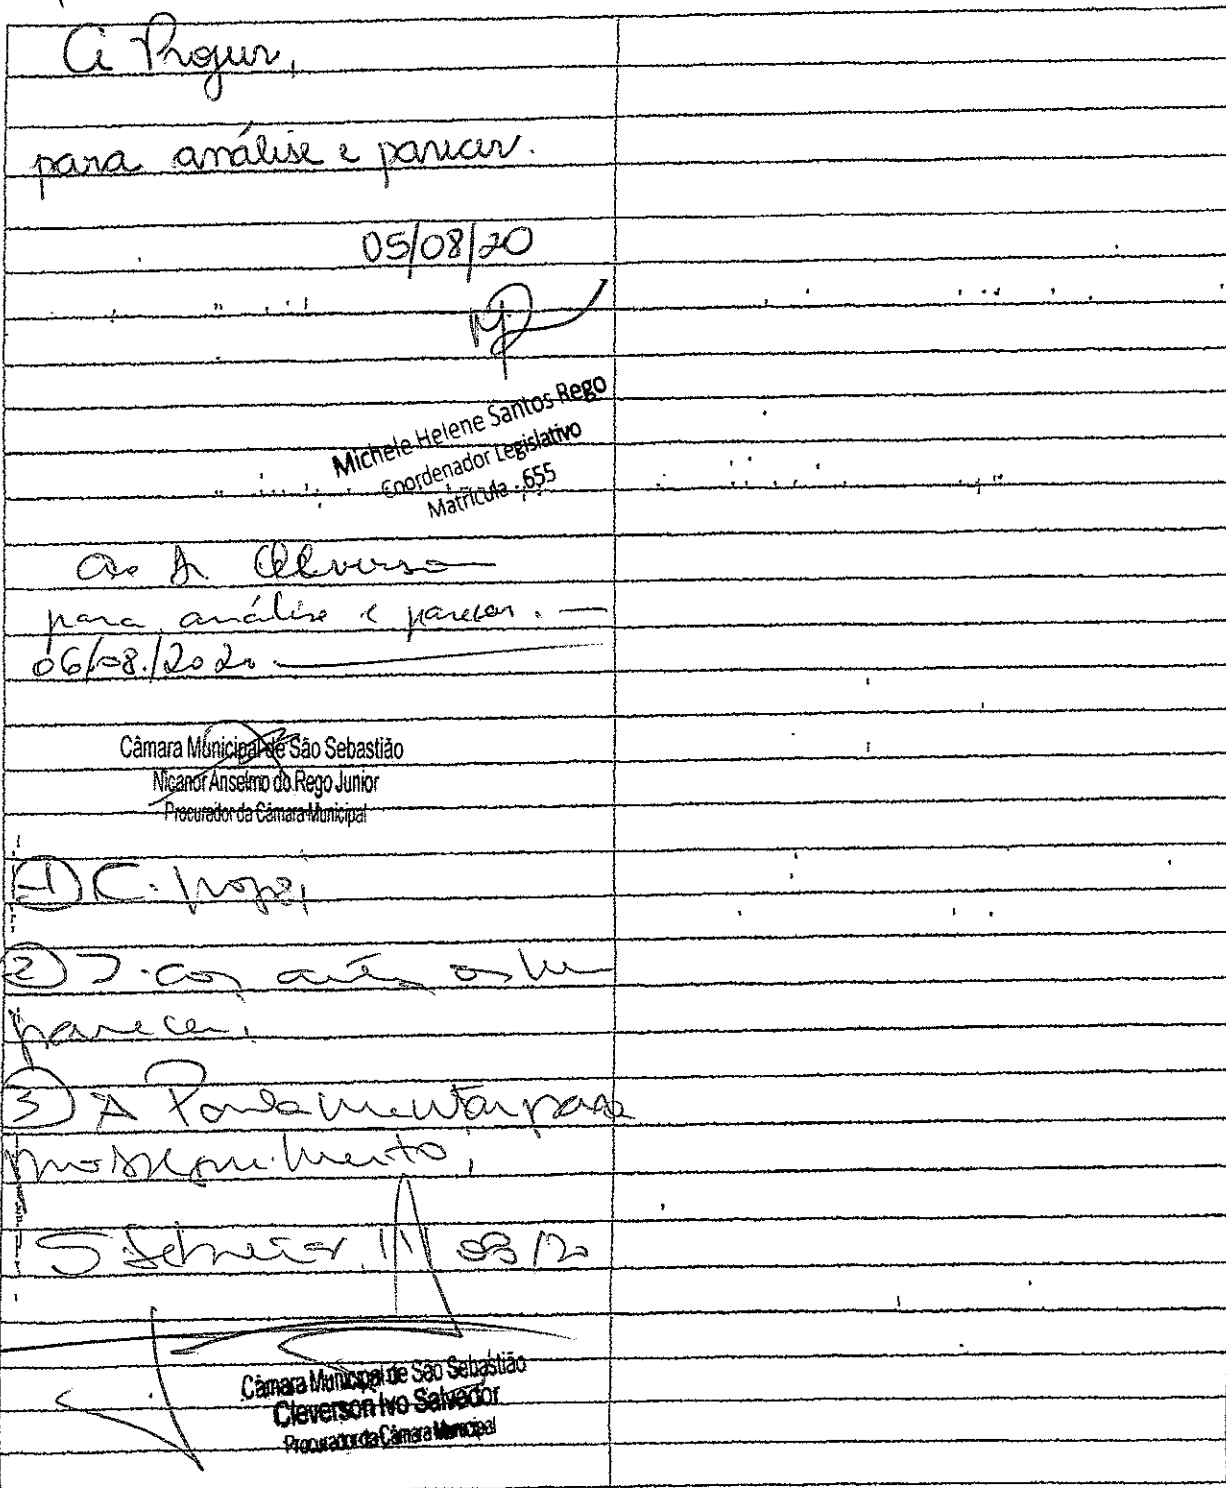 À Progur,
para análise e parecer.
05/08/20
Michele Helene Santos Rego
Coordenador Legislativo
Matrícula - 655
Ao Dr Cleverson
para análise e parecer.
06/08/2020
Câmara Municipal de São Sebastião
Nicanor Anselmo do Rego Junior
Procurador da Câmara Municipal
1) C.
2)
parecer,
3) A Parlamentar para
prosseguimento,
S. Sebastião, 11/08/20
Câmara Municipal de São Sebastião
Cleverson Ivo Salvador
Procurador da Câmara Municipal